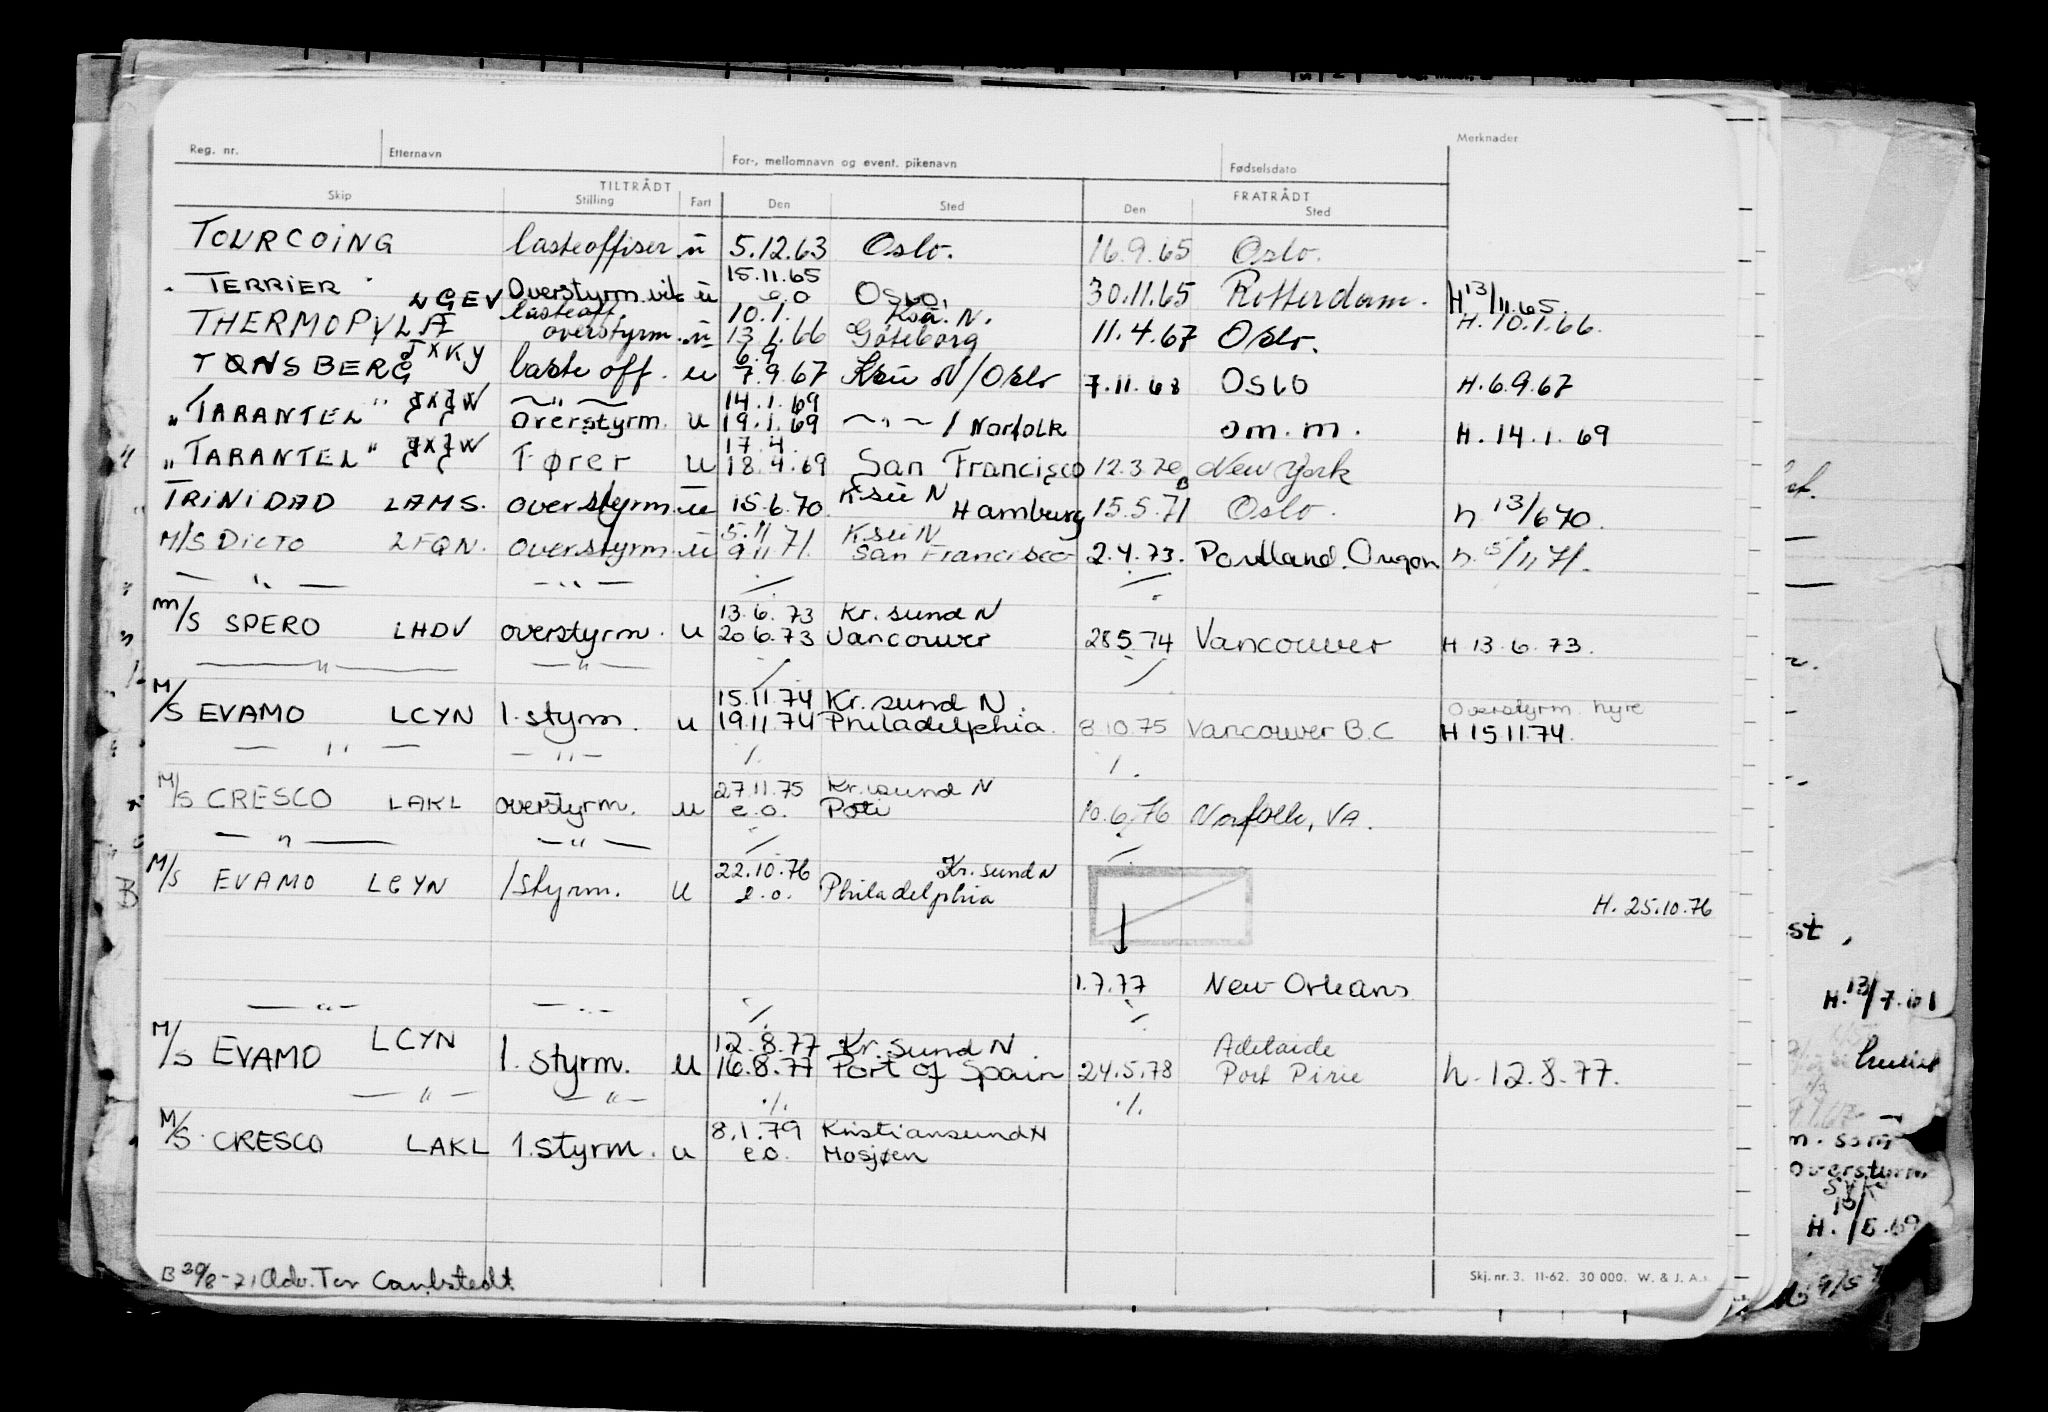 Reg. nr. Etternavn For-, mellomnavn og event. pikenavn Fødselsdato Merknader
TILTRÅDT FRATRÅDT
Skip Stilling Fart Den Sted Den Sted
TOURCOING lasteoffiser u 5.12.63 Oslo. 16.9.65 Oslo.
15.11.65
TERRIER LGEV Overstyrm. vik u e.o Oslo. 30.11.65 Rotterdam. H 13/11.65.
lasteoff. 10.1. Ksu. N. H. 10.1.66.
THERMOPYLÆ overstyrm. u 13.1.66 Göteborg 11.4.67 Oslo.
JXKY 6.9
TØNSBERG laste off. u 7.9.67 Ksu N/Oslo 7.11.68 Oslo H. 6.9.67
— " — 14.1.69
"TARANTEL" JXJW overstyrm. u 19.1.69 — " — / Norfolk om.m. H. 14.1.69
17.4.
"TARANTEL" JXJW Fører u 18.4.69 San Francisco 12.3.70 New York
Ksu N
TRINIDAD LAMS. overstyrm. u 15.6.70 Hamburg 15.5.71 Oslo. h 13/6 70.
5.11 Ksu N
M/S DICTO LFQN. overstyrm. u 9.11.71. San Francisco 2.4.73. Portland. Oregon h. 5/11 71.
— " — — " — ·/. ·/.
13.6.73 Kr.sund N
M/S SPERO LHDV overstyrm. u 20.6.73 Vancouver 28.5.74 Vancouver H 13.6.73.
— " — — " — ·/. ·/.
15.11.74 Kr.sund N. Overstyrm. hyre
M/S EVAMO LCYN 1.styrm. u 19.11.74 Philadelphia. 8.10.75 Vancouver B.C H 15.11.74.
— " — — " — ·/. ·/.
27.11.75 Kr.sund N
M/S CRESCO LAKL overstyrm. u e.o. Poti 10.6.76 Norfolk, VA.
— " — — " — ·/. ·/.
22.10.76 Kr.sund N
M/S EVAMO LCYN 1styrm. u e.o. Philadelphia H. 25.10.76
1.7.77 New Orleans
— " — — " — ·/. ·/.
LCYN 12.8.77 Kr.sund N Adelaide
M/S EVAMO 1.styrm. u 16.8.77 Port of Spain 24.5.78 Port Pirie h. 12.8.77.
— " — — " — ·/. ·/.
8.1.79 Kristiansund N
M/S CRESCO LAKL 1.styrm. u e.o. Mosjøen
Skj. nr. 3. 11-62. 30 000. W. & J. A.s
st,
H. 13/7.61
m. som
Overstyrm